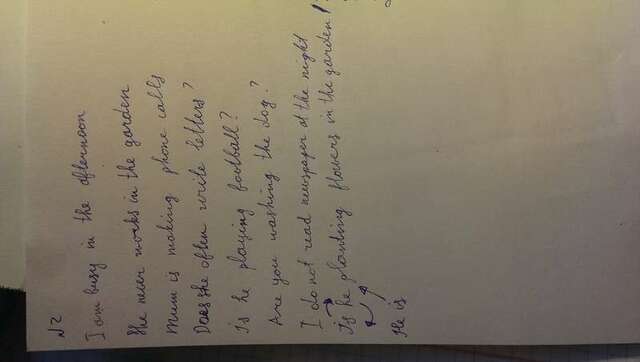 N2
I am busy in the afternoon
She never works in the garden
Mum is making phone calls
Does she often write letters?
Is he playing football?
Are you washing the dog?
I do not read newspaper at the night
Is he planting flowers in the garden
He is